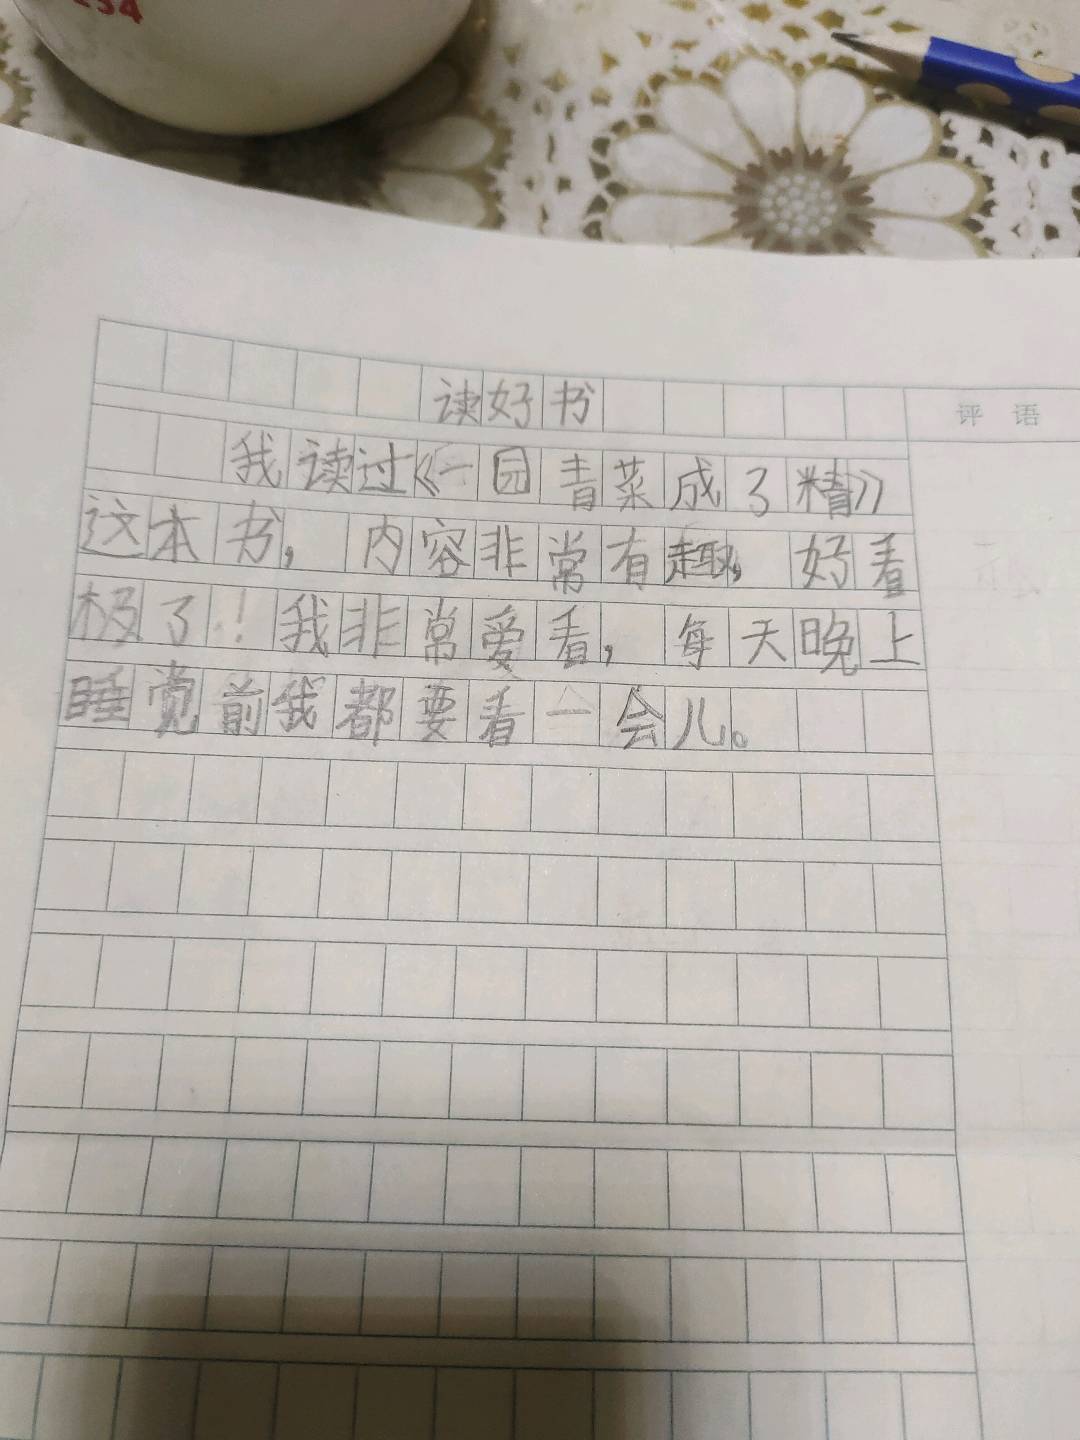 254
读好书
评语
我读过《一园青菜成了精》
这本书，内容非常有趣，好看
极了！我非常爱看，每天晚上
睡觉前我都要看一会儿。